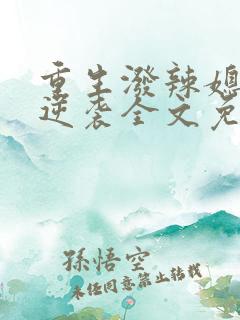 重生潑辣媳
逆袭全文免
孫悟空
未经同意禁止转载